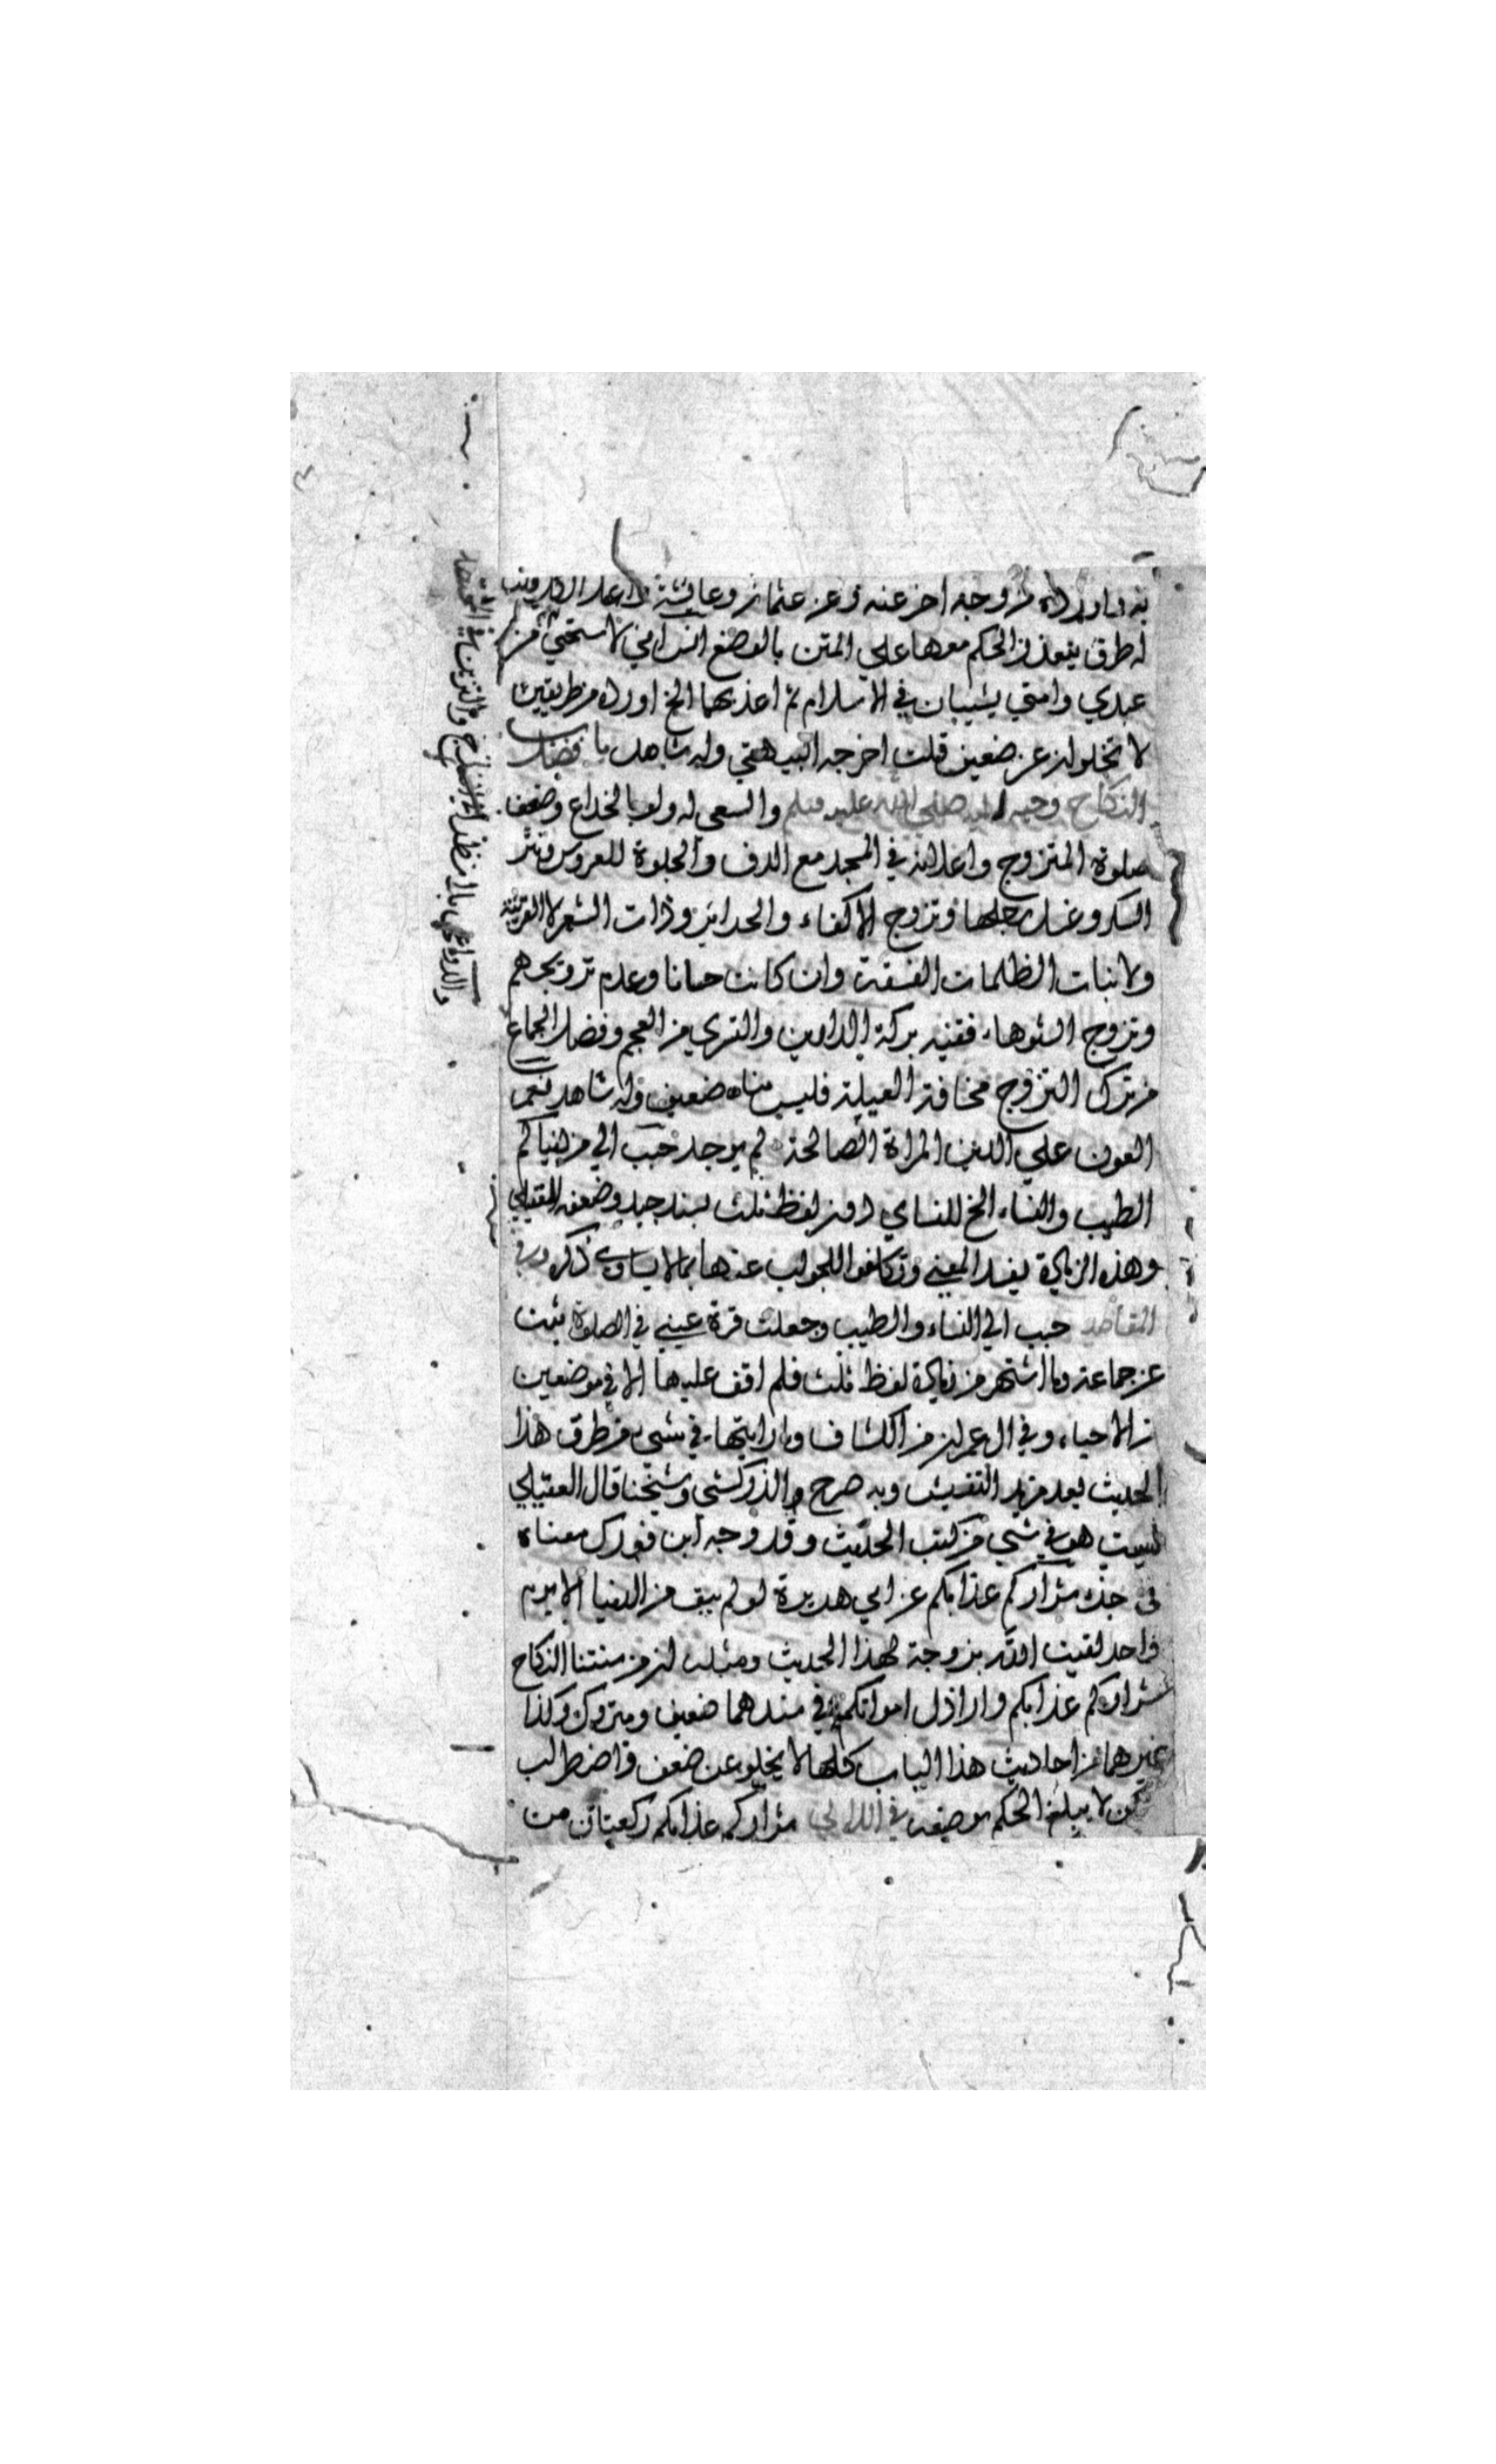 به واورده من وجه اخر عنه وعن عثمان وعايشة
له طرق يتعذر الحكم معها على المتن بالوضع انس اني لاستحيي من
عبدي وامتي يشيبان في الاسلام ثم اعذبهما الخ اورده من طريقين
لا تخلوان عن ضعيف قلت اخرجه البيهقي وله شاهد باب فضل
النكاح وحبه اليه صلى الله عليه وسلم والسعي له ولو بالخداع وضعف
صلوة المتزوج واعلانه في المسجد مع الدف والجلوة للعروس ونثر
السكر وغسل رجلها وتزوج الاكفاء والحداين وذات الشعر لا القريبة
ولا بنات الظلمات الفسقة وان كانت حسانا وعدم تزويجهم
وتزوج الشوهاء ففيه بركة الدارين والتسري من العجم وفضل الجماع
من ترك التزوج مخافة العيلة فليس منا ضعيف وله شاهد نعم
العون على الدين المراة الصالحة لم يوجد حبب الي من دنياكم
الطيب والنساء الخ للنساي دون لفظ ثلث بسند جيد وضعفه العقيلي
وهذه الزيادة يفسد المعنى وتكلفوا للجواب عنها بما لا يساوي ذكره وفي
المقاصد حبب الي النساء والطيب وجعلت قرة عيني في الصلوة ثبت
عن جماعة وما اشتهر من زيادة لفظ ثلث فلم اقف عليها الا في موضعين
من الاحياء وفي ال عمران من الكشاف وما رايتها في شيء من طرق هذا
الحديث بعد مزيد التفتيش وبه صرح الزركشي وشيخنا قال العقيلي
ليست هو في شيء من كتب الحديث وقد وجه ابن فورك معناه
في جزء شراركم عزابكم عن ابي هريرة لو لم يبق من الدنيا الا يوم
واحد لقيت الله بزوجة لهذا الحديث ومثله ان من سنتنا النكاح
شراركم عزابكم واراذل امواتكم في سندهما ضعيف ومتروك وكذا
غيرهما من احاديث هذا الباب كلها لا يخلو عن ضعف واضطراب
لكن لا يبلغ الحكم بوضعه في اللالي شراركم عزابكم ركعتان من